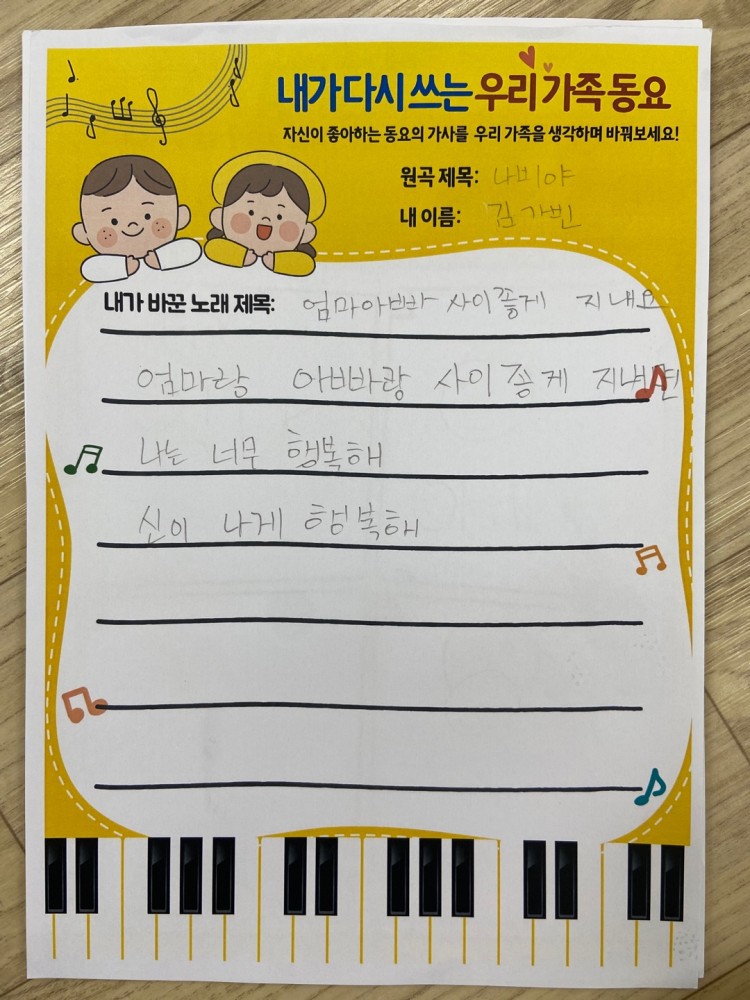 내가 다시 쓰는 우리 가족 동요
자신이 좋아하는 동요의 가사를 우리 가족을 생각하며 바꿔보세요!
원곡 제목: 나비야
내 이름: 김가빈
내가 바꾼 노래 제목: 엄마아빠 사이좋게 지내요
엄마랑 아빠랑 사이 좋게 지내면
나는 너무 행복해
신이 나게 행복해